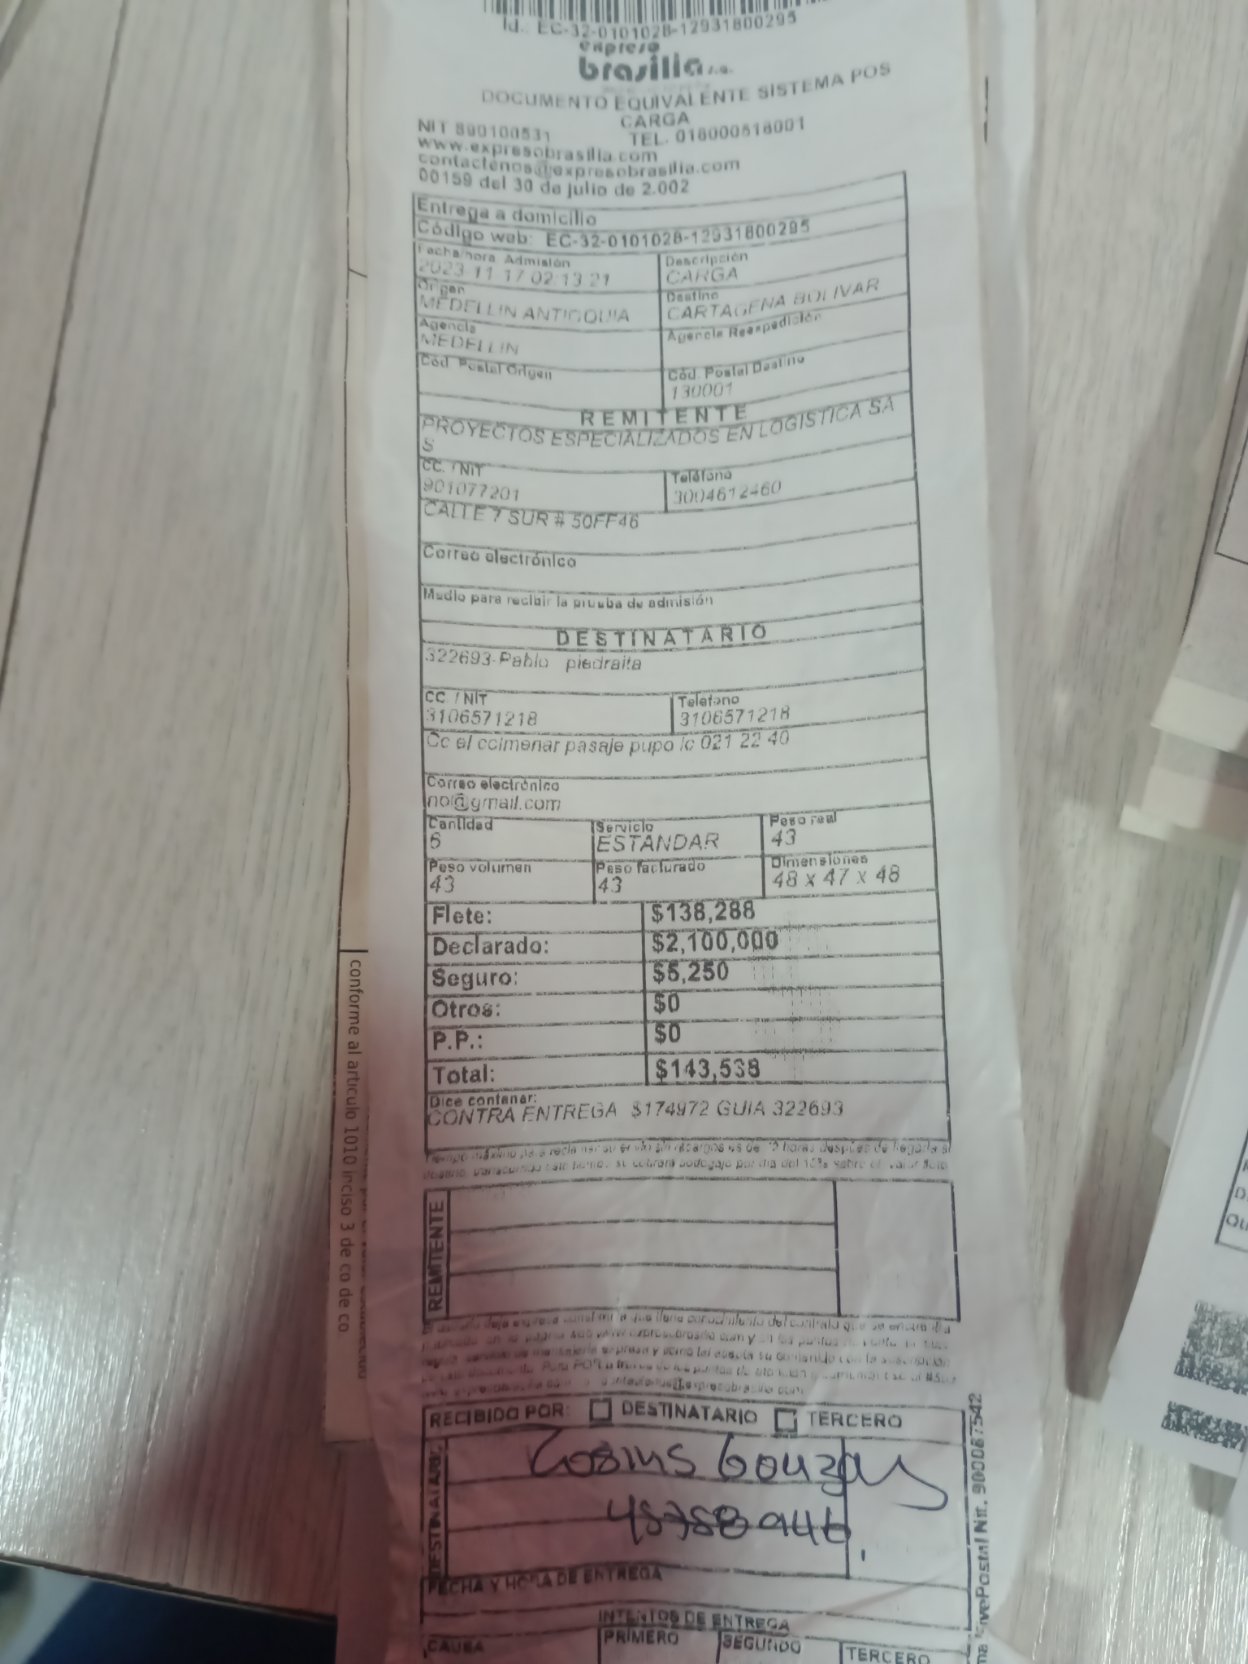 Id.: EC-32-0101028-12931800295
expreso
brasilia s.a.
DOCUMENTO EQUIVALENTE SISTEMA POS
CARGA
NIT 890100531 TEL. 018000518001
www.expresobrasilia.com
contactenos@expresobrasilia.com
00159 del 30 de julio de 2.002
Entrega a domicilio
Código web: EC-32-0101028-12931800295
Fecha/hora Admisión Descripción
2023-11-17 02:13:21 CARGA
Origen Destino
MEDELLIN ANTIOQUIA CARTAGENA BOLIVAR
Agencia Agencia Reexpedición
MEDELLIN
Cód. Postal Origen Cód. Postal Destino
130001
REMITENTE
PROYECTOS ESPECIALIZADOS EN LOGISTICA SA
S
CC. / NIT Teléfono
901077201 3004612460
CALLE 7 SUR # 50FF46
Correo electrónico
Medio para recibir la prueba de admisión
DESTINATARIO
322693-Pablo piedraita
CC. / NIT Teléfono
3106571218 3106571218
Cc el colmenar pasaje pupo lc 021 22 40
Correo electrónico
no@gmail.com
Cantidad Servicio Peso real
6 ESTANDAR 43
Peso volumen Peso facturado Dimensiones
43 43 48 x 47 x 48
Flete: $138,288
Declarado: $2,100,000
Seguro: $5,250
Otros: $0
P.P.: $0
Total: $143,538
Dice contener:
CONTRA ENTREGA $174972 GUIA 322693
REMITENTE
RECIBIDO POR: DESTINATARIO TERCERO
DESTINATARIO
45758946
FECHA Y HORA DE ENTREGA
INTENTOS DE ENTREGA
CAUSA PRIMERO SEGUNDO TERCERO
Postal Nit. 900087542
conforme al articulo 1010 inciso 3 de co de co